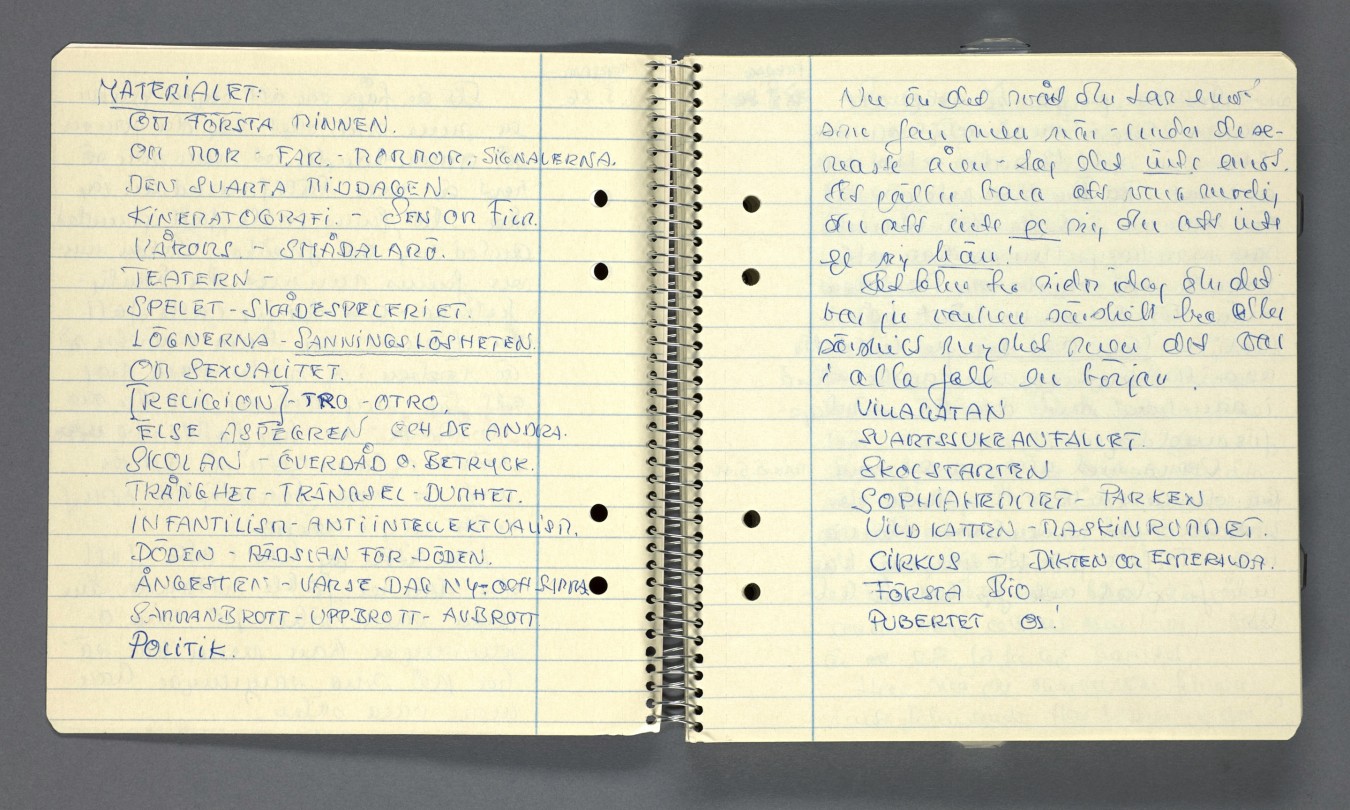 MATERIALET:
OM FÖRSTA MINNEN.
OM MOR - FAR. - MORMOR, - SIGNALERNA.
DEN SVARTA MIDDAGEN.
KINEMATOGRAFI. - SEN OM FILM.
VÅROMS. - SMÅDALARÖ.
TEATERN -
SPELET - SKÅDESPELERIET.
LÖGNERNA - SANNINGSLÖSHETEN.
OM SEXUALITET.
[RELIGION] - TRO - OTRO.
ELSE ASPEGREN OCH DE ANDRA.
SKOLAN - ÖVERDÅD O. BETRYCK.
TRÅNGHET - TRÄNGSEL - DUMHET.
INFANTILISM - ANTIINTELLEKTUALISM.
DÖDEN - RÄDSLAN FÖR DÖDEN.
ÅNGESTEN - VARJE DAG NY- OCH
SAMMANBROTT - UPPBROTT - AVBROTT
POLITIK.
Nu är det svåra det tar emot
som fan men när - under de se-
naste åren - tog det inte emot.
Det gäller bara att vara modig
det att inte ge sig det att inte
ge sig hän!
Det blev tre sidor idag det
var ju varken särskilt bra eller
särskilt mycket men det var
i alla fall en början.
VILLAGATAN
SVARTSJUKEANFALLET.
SKOLSTARTEN
SOPHIAHEMMET - PARKEN
VILDKATTEN - MASKINRUMMET.
CIRKUS - DIKTEN OM ESMERALDA.
FÖRSTA BIO
PUBERTET